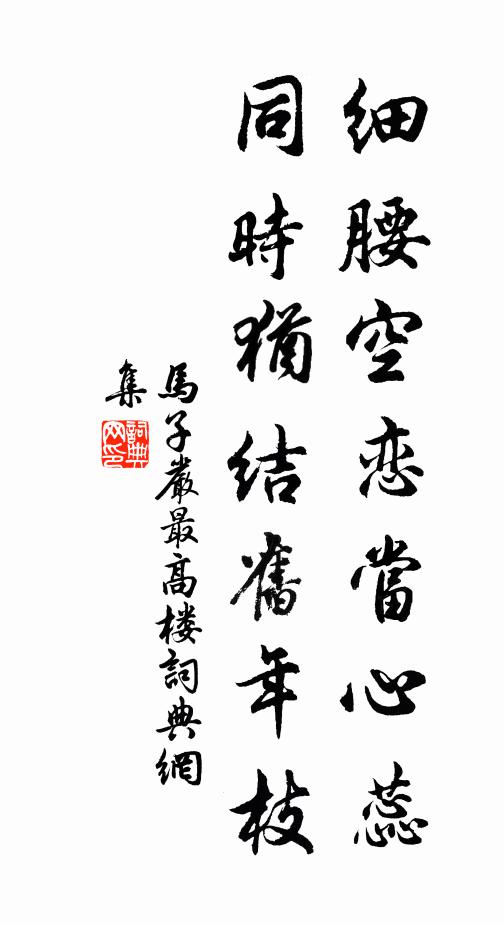 細腰空恋當心蕊
同時猶結舊年枝
馬子嚴最高楼詞典網
集
詞典
网印